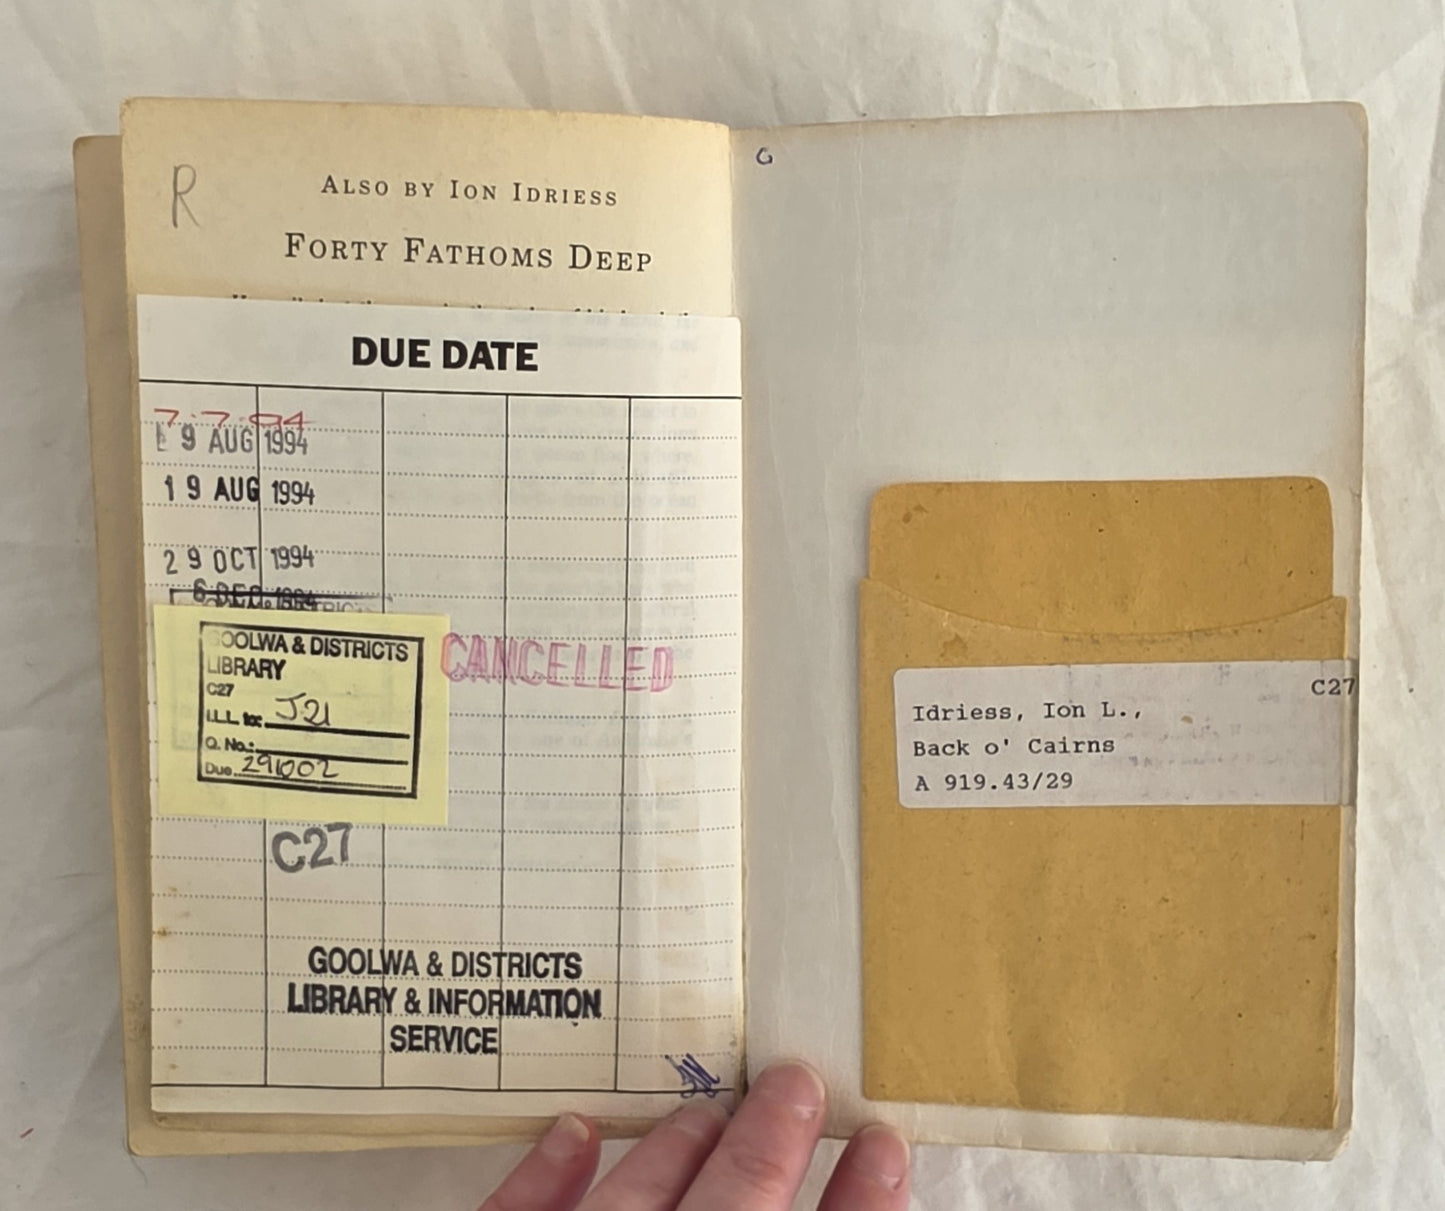 R
ALSO BY ION IDRIESS
FORTY FATHOMS DEEP
DUE DATE
7.7.94
9 AUG 1994
19 AUG 1994
29 OCT 1994
6 DEC 1994
GOOLWA & DISTRICTS
LIBRARY
C27
I.L.L. to: J21
Q. No.:
Due
CANCELLED
C27
GOOLWA & DISTRICTS
LIBRARY & INFORMATION
SERVICE
G
C27
Idriess, Ion L.,
Back o' Cairns
A 919.43/29